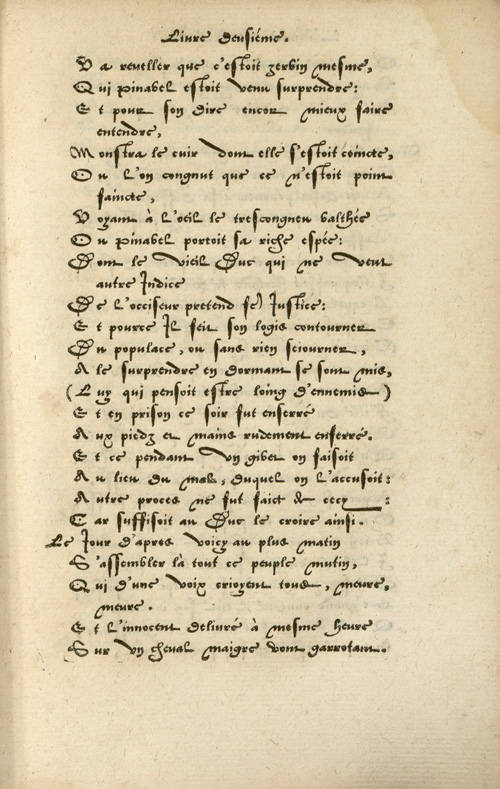 Livre deusiéme.
Va reveller que c'estoit zerbin mesme,
Qui pinabel estoit venu surprendre:
Et pour son dire encor mieux faire
entendre,
Monstra le cuir dont elle s'estoit ceincte,
Ou l'on congnut que ce n'estoit point
faincte,
Voyant à l'oeil le trescongneu balthée
Ou pinabel portoit sa riche espée:
Dont le vieil Duc qui ne veut
autre Indice
De l'occiseur pretend fe) Justice:
Et pource Il feit son logis contourner
Du populace, ou sans rien seiourner,
A le surprendre en dormant se sont mis,
(Luy qui pensoit estre loing d'ennemis)
Et en prison ce soir fut enserré
Aux piedz et mains rudement enferré.
Et ce pendant vn gibet on faisoit
Au lieu du mal, duquel on l'accusoit:
Autre proces ne fut faict de cecy:
Car suffisoit au Duc le croire ainsi.
Le Jour d'apres voicy au plus matin
S'assembler là tout ce peuple mutin,
Qui d'une voix crioyent tous, meure,
meure.
Et l'innocent delivré à mesme heure
Sur vn cheval maigre vont garrotant.